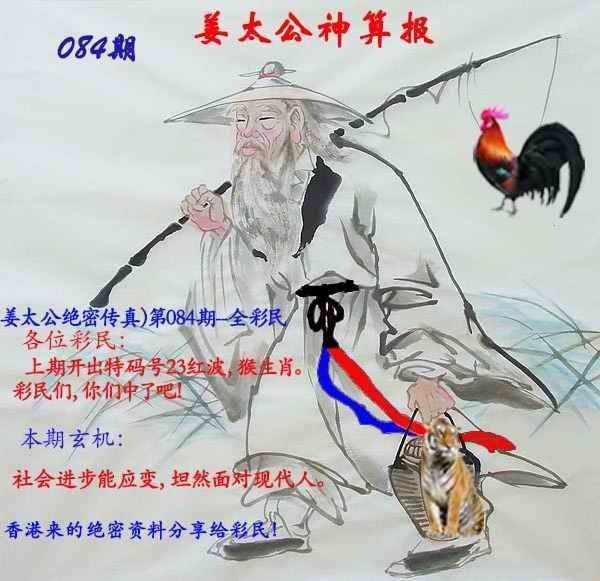 姜太公神算报
084期
姜太公绝密传真)第084期--全彩民
各位彩民:
上期开出特码号23红波,猴生肖。
彩民们,你们中了吧!
本期玄机:
社会进步能应变,坦然面对现代人。
香港来的绝密资料分享给彩民!